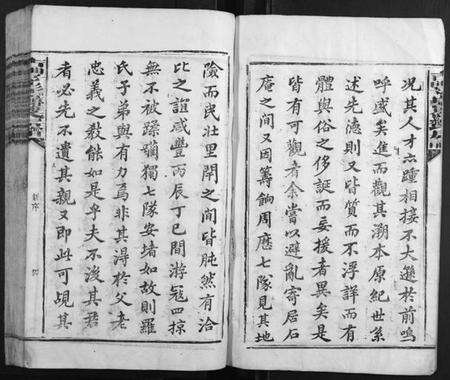 況其人才六踵相接不大遜於前嗚
呼盛矣進而觀其溯本原紀世系
述先德則又皆質而不浮詳而有
體與俗之侈誕而妄援者異矣是
皆有可觀者余嘗以避亂寄居石
庵之間又因籌餉周應七隊見其地
險而民壯里閈之間皆肫然有洽
比之誼咸豐丙辰丁巳間游冦四掠
無不被蹂躪獨七隊安堵如故則羅
氏子弟與有力焉非其淂於父老
忠義之教能如是乎夫不後其君
者必先不遺其親又即此可覘其